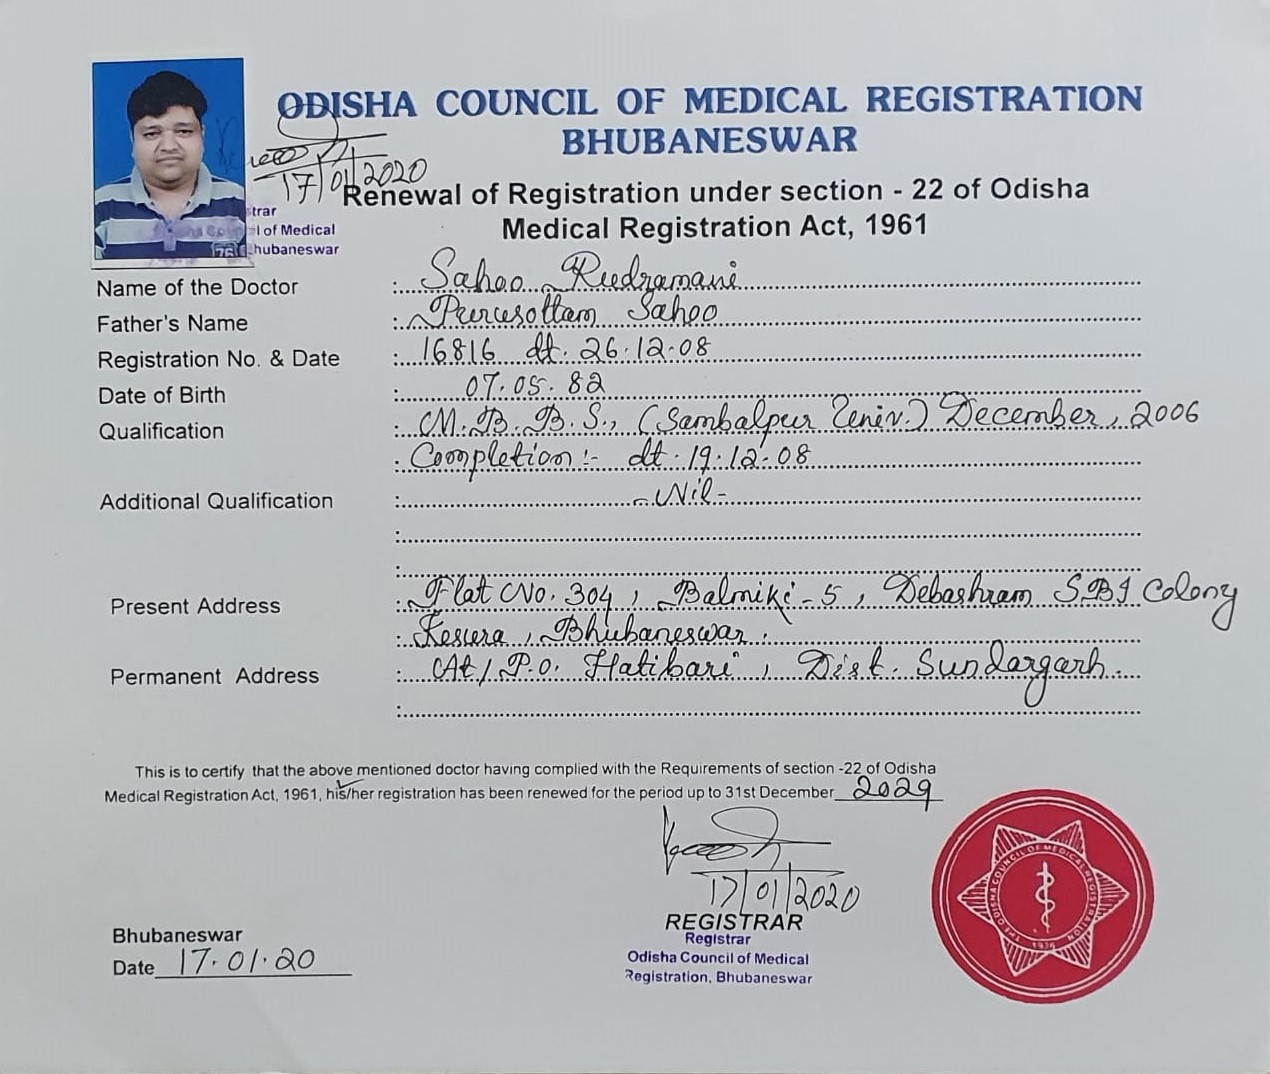 ODISHA COUNCIL OF MEDICAL REGISTRATION
BHUBANESWAR
17/01/2020
Renewal of Registration under section - 22 of Odisha
Medical Registration Act, 1961
strar
l of Medical
hubaneswar
Name of the Doctor : Sahoo Rudramani
Father's Name : Purusottam Sahoo
Registration No. & Date : 16816 dt. 26.12.08
Date of Birth : 07.05.82
Qualification : M.B.B.S., (Sambalpur Univ.) December, 2006
: Completion :- dt. 19.12.08
Additional Qualification : -Nil-
:
:
Present Address : Flat No. 304, Balmiki-5, Debashram SBI Colony
: Kesura, Bhubaneswar.
Permanent Address : At/P.O. Hatibari, Dist. Sundargarh.
:
This is to certify that the above mentioned doctor having complied with the Requirements of section -22 of Odisha
Medical Registration Act, 1961, his/her registration has been renewed for the period up to 31st December 2029
17/01/2020
REGISTRAR
Registrar
Odisha Council of Medical
Registration, Bhubaneswar
Bhubaneswar
Date 17.01.20
THE ODISHA COUNCIL OF MEDICAL REGISTRATION
1936